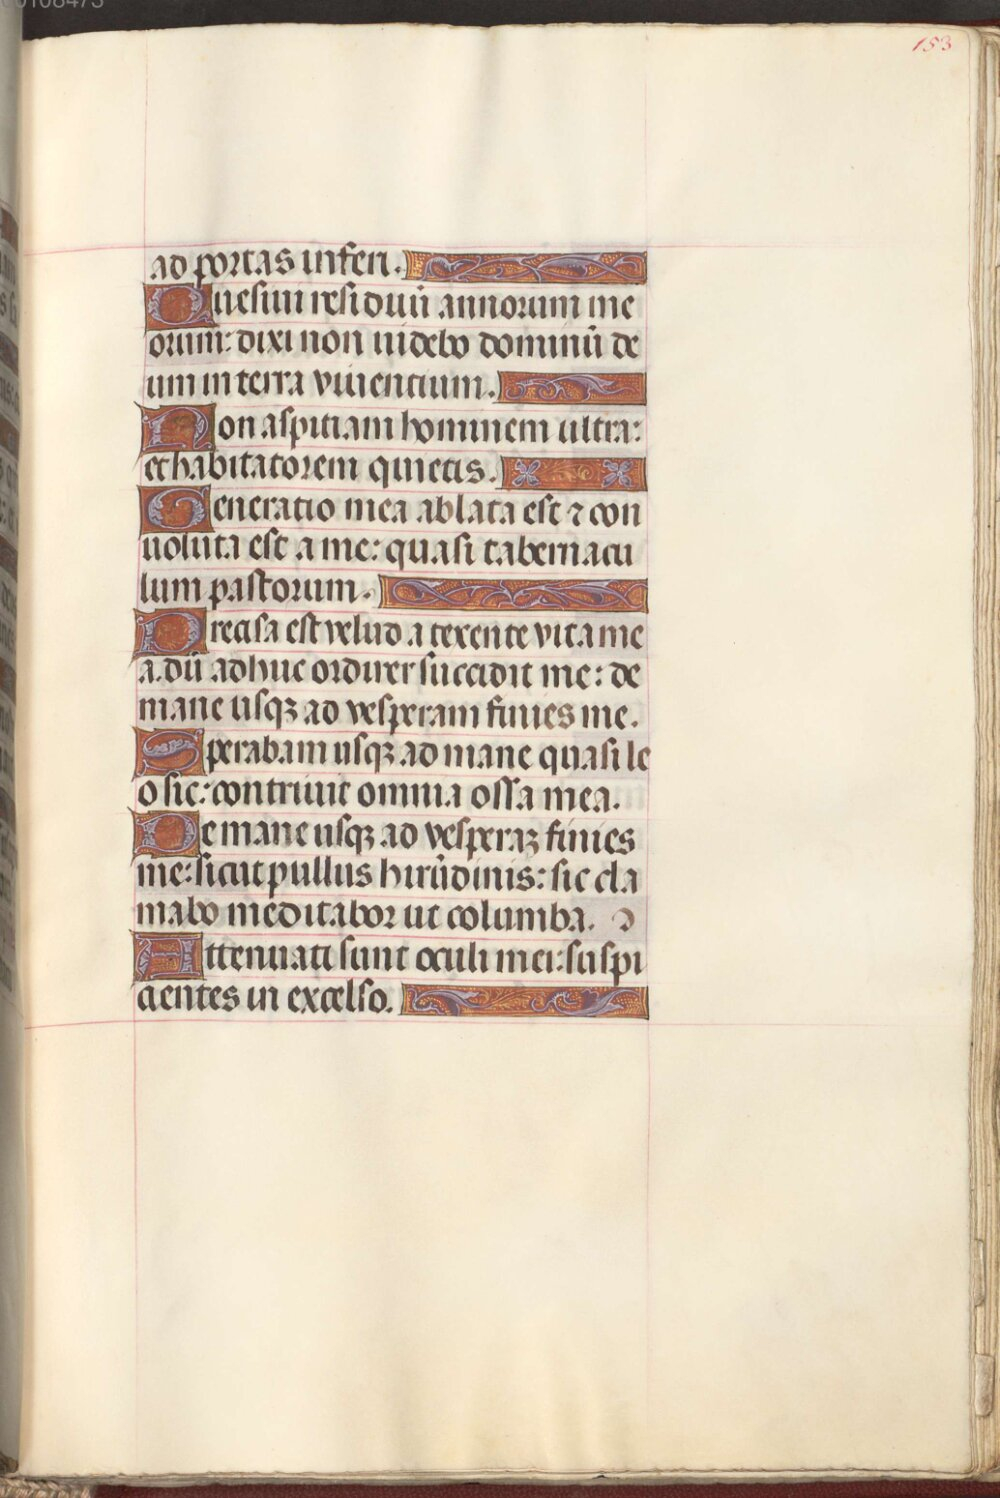 153
ad portas inferi.
Quesiui residuũ annorum me
orum: dixi non uidebo dominũ de
um in terra viuentium.
Non aspitiam hominem ultra:
et habitatorem quietis.
Generatio mea ablata est ⁊ con
uoluta est a me: quasi tabernacu
lum pastorum.
Precisa est velud a texente vita me
a. dũ adhuc ordirer succidit me: de
mane usqꝫ ad vesperam finies me.
Sperabam usqꝫ ad mane quasi le
o sic: contriuit omnia ossa mea.
De mane usqꝫ ad vesperaꝫ finies
me: sicut pullus hirũdinis: sic cla
mabo meditabor ut columba.
Attenuati sunt oculi mei: suspi
cientes in excelso.